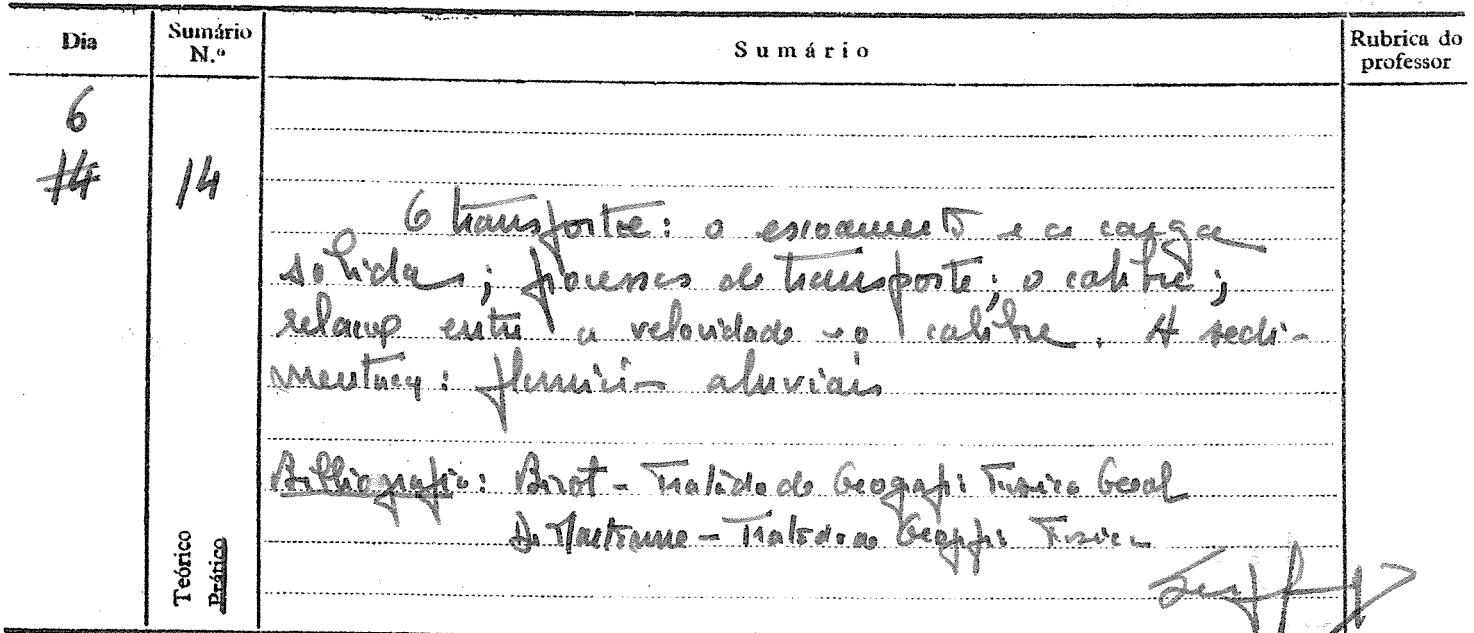 Dia Sumário N.º Sumário Rubrica do professor
6
14 14
O transporte: o escoamento e a carga
solida; processos de transporte; o calibre;
relação entre a velocidade e o calibre. A sedi-
mentação: planícies aluviais
Bibliografia: Birot - Tratado de Geografia Fisica Geral
De Martonne - Tratado de Geografia Fisica
Teórico
Prático